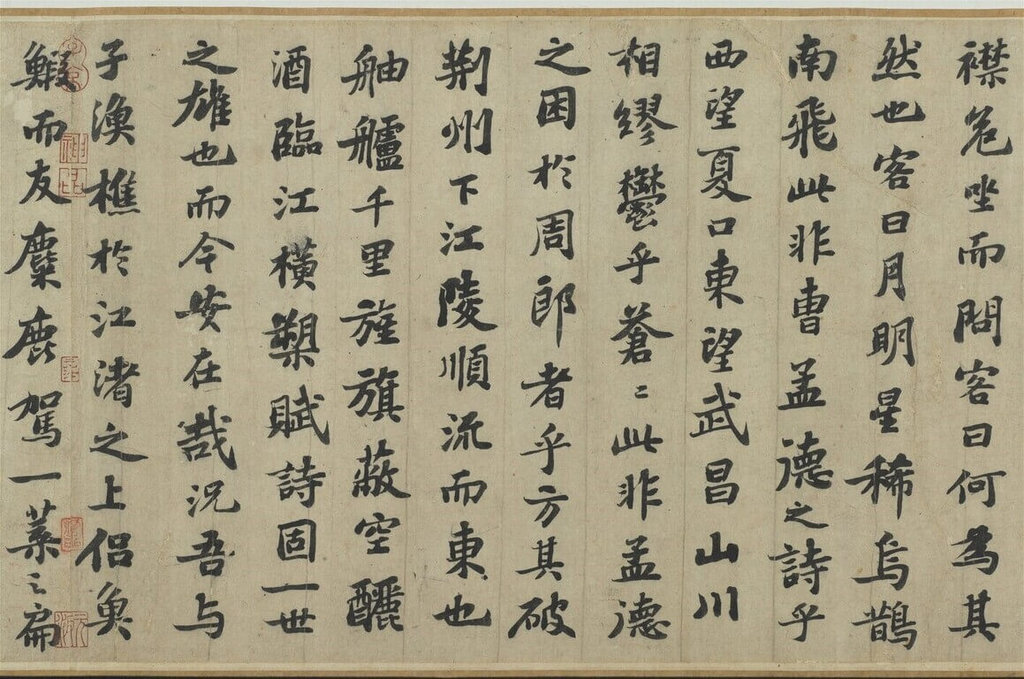 襟危坐而問客曰何為其
然也客曰月明星稀烏鵲
南飛此非曹孟德之詩乎
西望夏口東望武昌山川
相繆鬱乎蒼〻此非孟德
之困於周郎者乎方其破
荆州下江陵順流而東也
舳艫千里旌旗蔽空釃
酒臨江橫槊賦詩固一世
之雄也而今安在哉況吾与
子漁樵於江渚之上侶魚
鰕而友麋鹿駕一葉之扁